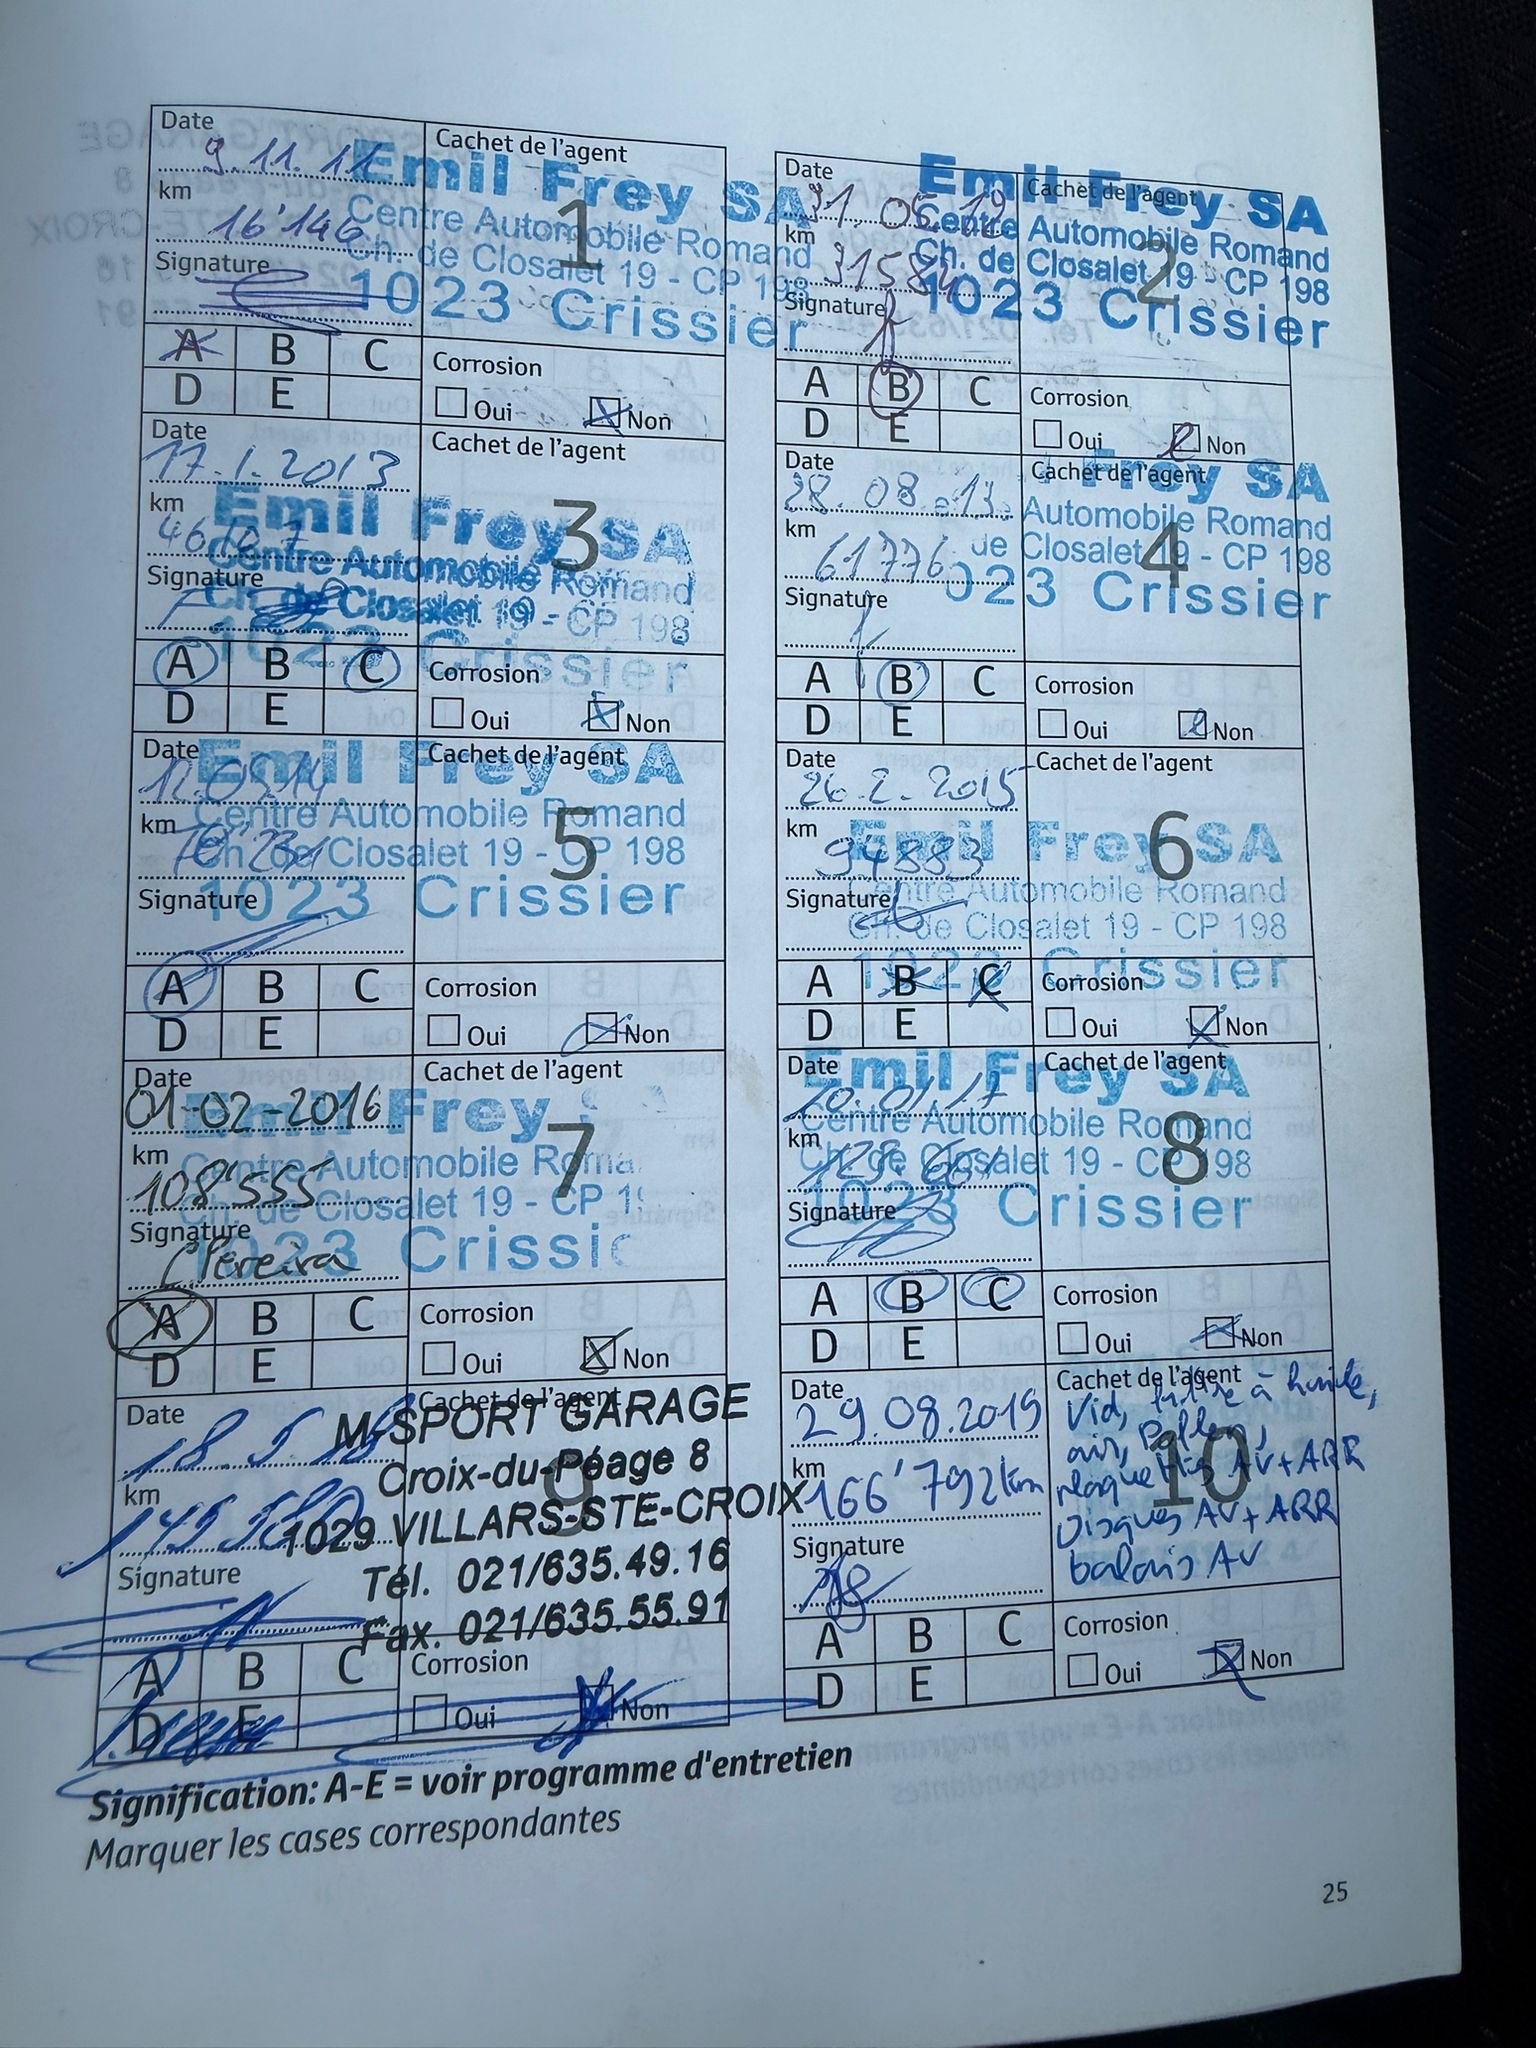 Date
9.11.11
Cachet de l'agent
km
16'146
Signature
1
Emil Frey SA
Centre Automobile Romand
Ch. de Closalet 19 - CP 198
1023 Crissier
A B C
D E
Corrosion
Oui Non
Date
31.05.12
Cachet de l'agent
km
31584
Signature
2
Emil Frey SA
Centre Automobile Romand
Ch. de Closalet 19 - CP 198
1023 Crissier
A B C
D E
Corrosion
Oui Non
Date
17.1.2013
Cachet de l'agent
km
Signature
3
Emil Frey SA
Centre Automobile Romand
Ch. de Closalet 19 - CP 198
1023 Crissier
A B C
D E
Corrosion
Oui Non
Date
28.08.13
Cachet de l'agent
km
61776
Signature
4
Frey SA
Automobile Romand
de Closalet 19 - CP 198
023 Crissier
A B C
D E
Corrosion
Oui Non
Date
12.05.14
Cachet de l'agent
km
78'231
Signature
5
Emil Frey SA
Centre Automobile Romand
Ch. de Closalet 19 - CP 198
1023 Crissier
A B C
D E
Corrosion
Oui Non
Date
26.2.2015
Cachet de l'agent
km
94883
Signature
6
Emil Frey SA
Centre Automobile Romand
Ch. de Closalet 19 - CP 198
1023 Crissier
A B C
D E
Corrosion
Oui Non
Date
01-02-2016
Cachet de l'agent
km
108'555
Signature
CPereira
7
Emil Frey
Centre Automobile Roma
Ch. de Closalet 19 - CP 1
1023 Crissi
A B C
D E
Corrosion
Oui Non
Date
10.01.17
Cachet de l'agent
km
Signature
8
Emil Frey SA
Centre Automobile Romand
Ch. de Closalet 19 - CP 198
1023 Crissier
A B C
D E
Corrosion
Oui Non
Date
Cachet de l'agent
km
Signature
9
M-SPORT GARAGE
Croix-du-Péage 8
1029 VILLARS-STE-CROIX
Tél. 021/635.49.16
Fax. 021/635.55.91
A B C
D E
Corrosion
Oui Non
Date
29.08.2019
Cachet de l'agent
km
166'792km
Signature
10
Vid, filtre à huile,
air, Pollen,
plaquettes AV+ARR
Disques AV+ARR
balais AV
A B C
D E
Corrosion
Oui Non
Signification: A-E = voir programme d'entretien
Marquer les cases correspondantes
25